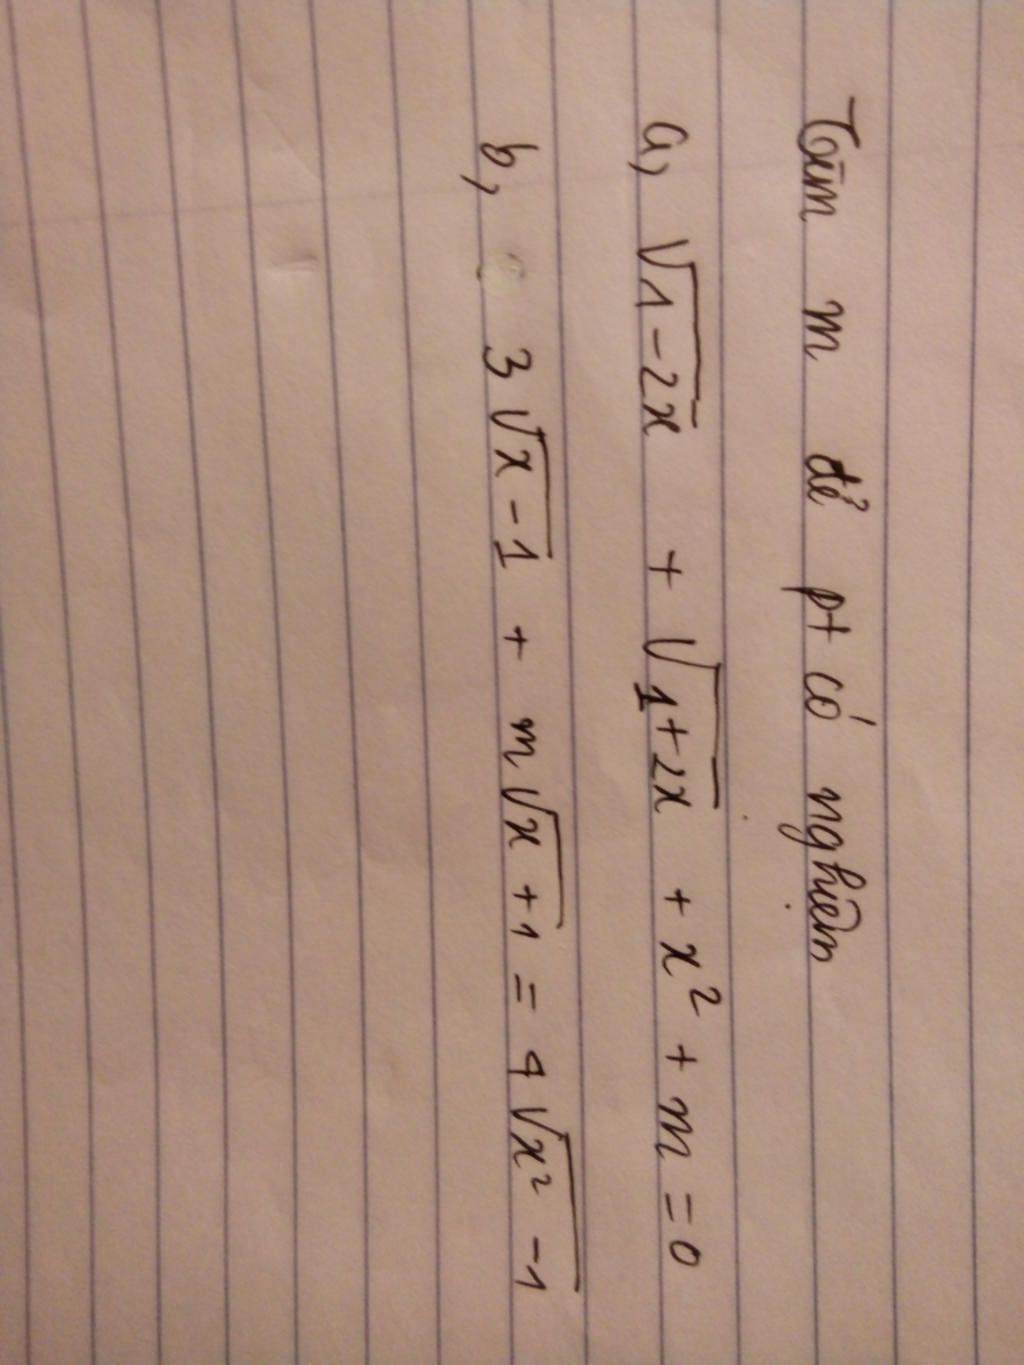 Tìm m để pt có nghiệm
a, √1-2x + √1+2x + x² + m = 0
b, 3√x-1 + m√x+1 = 4√x²-1